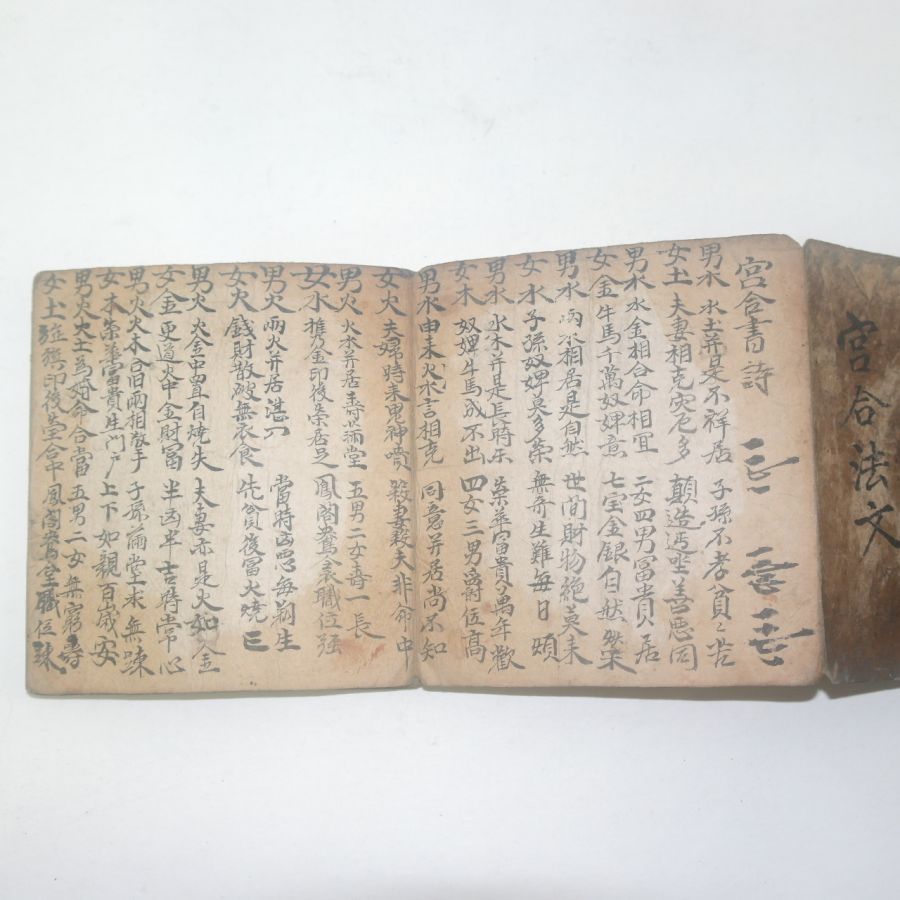 宮合法文
宮合書詩
男水 水土并是不祥居 子孫不孝貧〻苦
女土 夫妻相克災厄多 顛造 善惡同
男水 水金相合命相宜 二女四男富貴居
女金 牛馬千萬奴婢意 七宝金銀自然榮
男水 両水相居是自然 世間財物絶莫来
女水 子孫奴婢莫多荣 無奇生難每日煩
男水 水木并是長時乐 荣華富貴萬年歡
女木 奴婢牛馬成不出 四女三男爵位高
男水 由来火水言相克 同意并居尚不知
女火 夫婦時来鬼神嘖 殺妻殺夫非命中
男火 火水并居壽滿堂 五男二女壽一長
女水 携乃金印後荣居足 鳳閣鴛衾職位强
男火 兩火并居湛 當時凶惡每 生
女火 錢財散破無衣食 先貧後富火燒亡
男火 火金中置自燒失 夫妻亦是火如金
女金 更道火中金財富 半凶半吉時常心
男火 火木合旧兩相散手 子孫滿堂求無竦
女木 荣華富貴生門戶 上下如親百歲安
男火 火土為婚命合當 五男二女無窮壽
女土 印後 合中 鳳閣鴛全職位竦